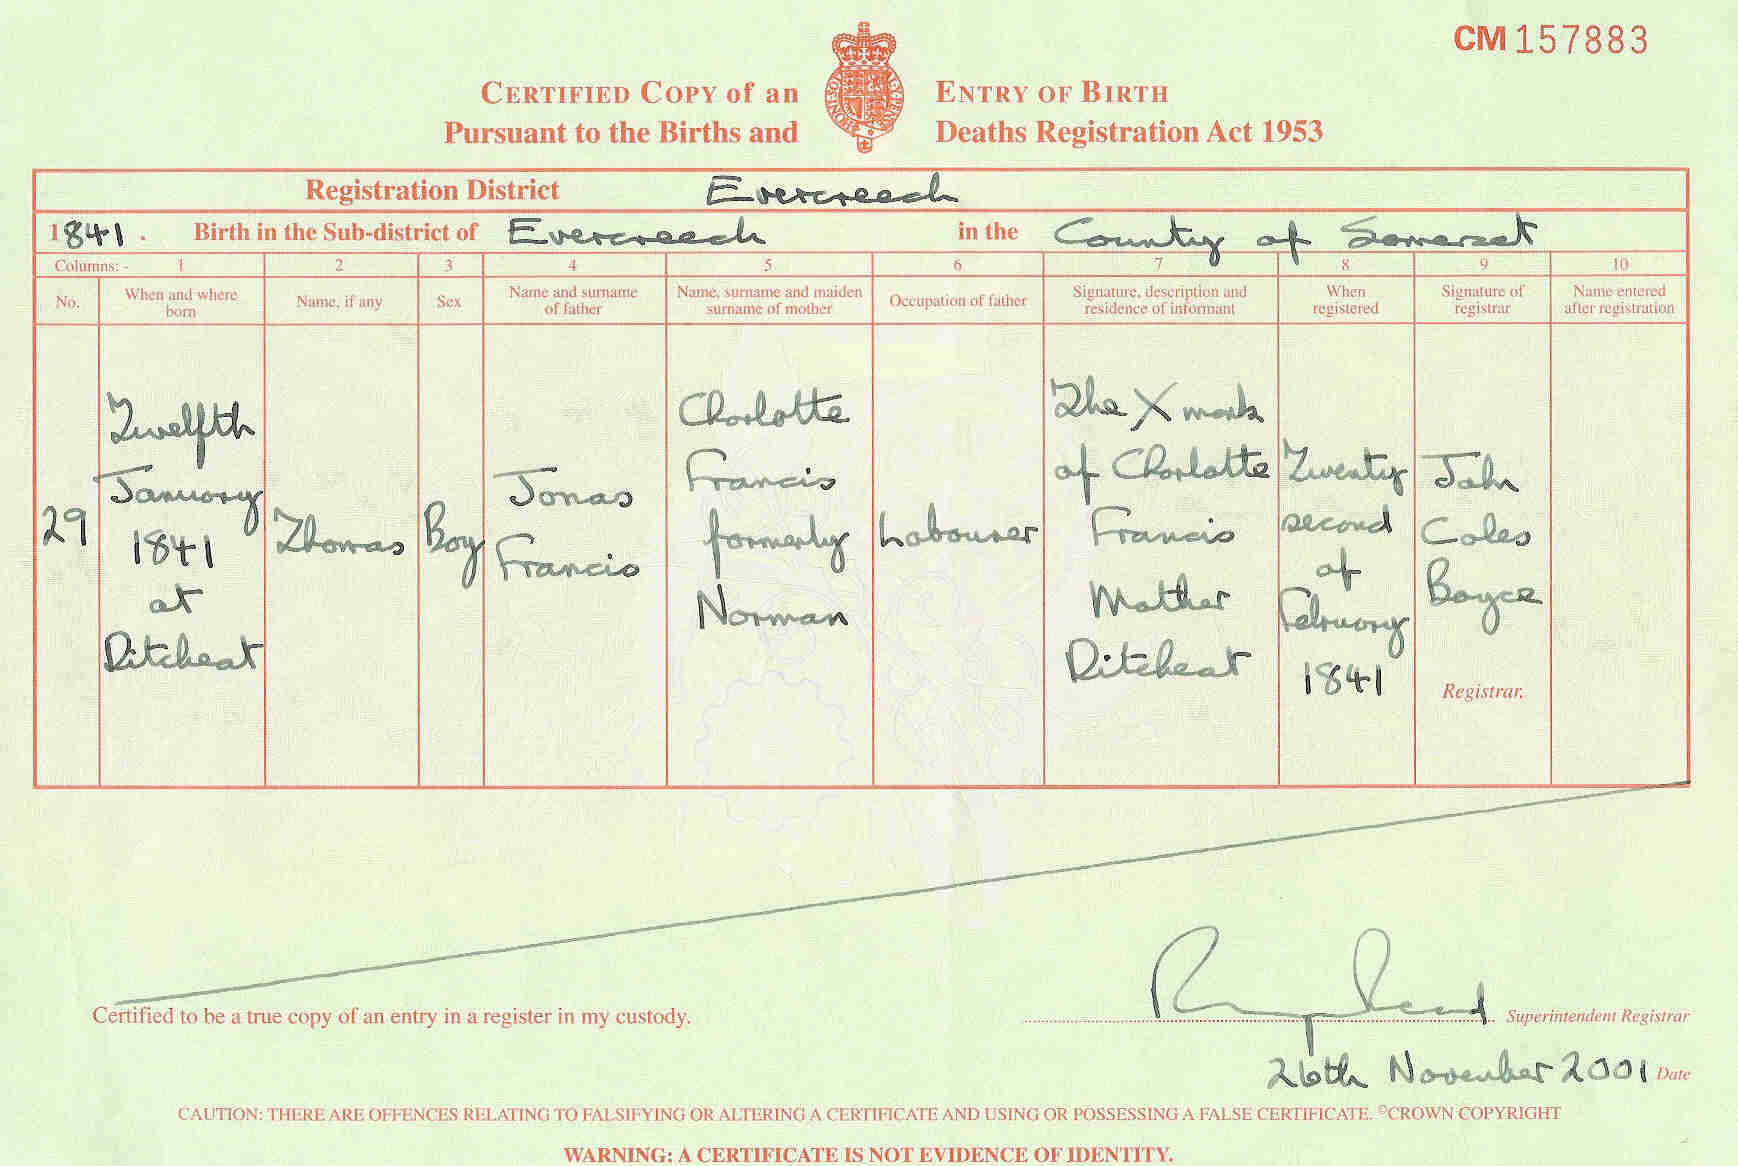 CM 157883
CERTIFIED COPY of an ENTRY OF BIRTH
Pursuant to the Births and Deaths Registration Act 1953
Registration District Evercreech
1841. Birth in the Sub-district of Evercreech in the County of Somerset
Columns:- 1 2 3 4 5 6 7 8 9 10
No.
When and where
born
Name, if any
Sex
Name and surname
of father
Name, surname and maiden
surname of mother
Occupation of father
Signature, description and
residence of informant
When
registered
Signature of
registrar
Name entered
after registration
29
Twelfth
January
1841
at
Ditcheat
Thomas
Boy
Jonas
Francis
Charlotte
Francis
formerly
Norman
Labourer
The X mark
of Charlotte
Francis
Mother
Ditcheat
Twenty
second
of
February
1841
John
Coles
Boyce
Registrar.
Certified to be a true copy of an entry in a register in my custody.
Superintendent Registrar
26th November 2001 Date
CAUTION: THERE ARE OFFENCES RELATING TO FALSIFYING OR ALTERING A CERTIFICATE AND USING OR POSSESSING A FALSE CERTIFICATE. ©CROWN COPYRIGHT
WARNING: A CERTIFICATE IS NOT EVIDENCE OF IDENTITY.